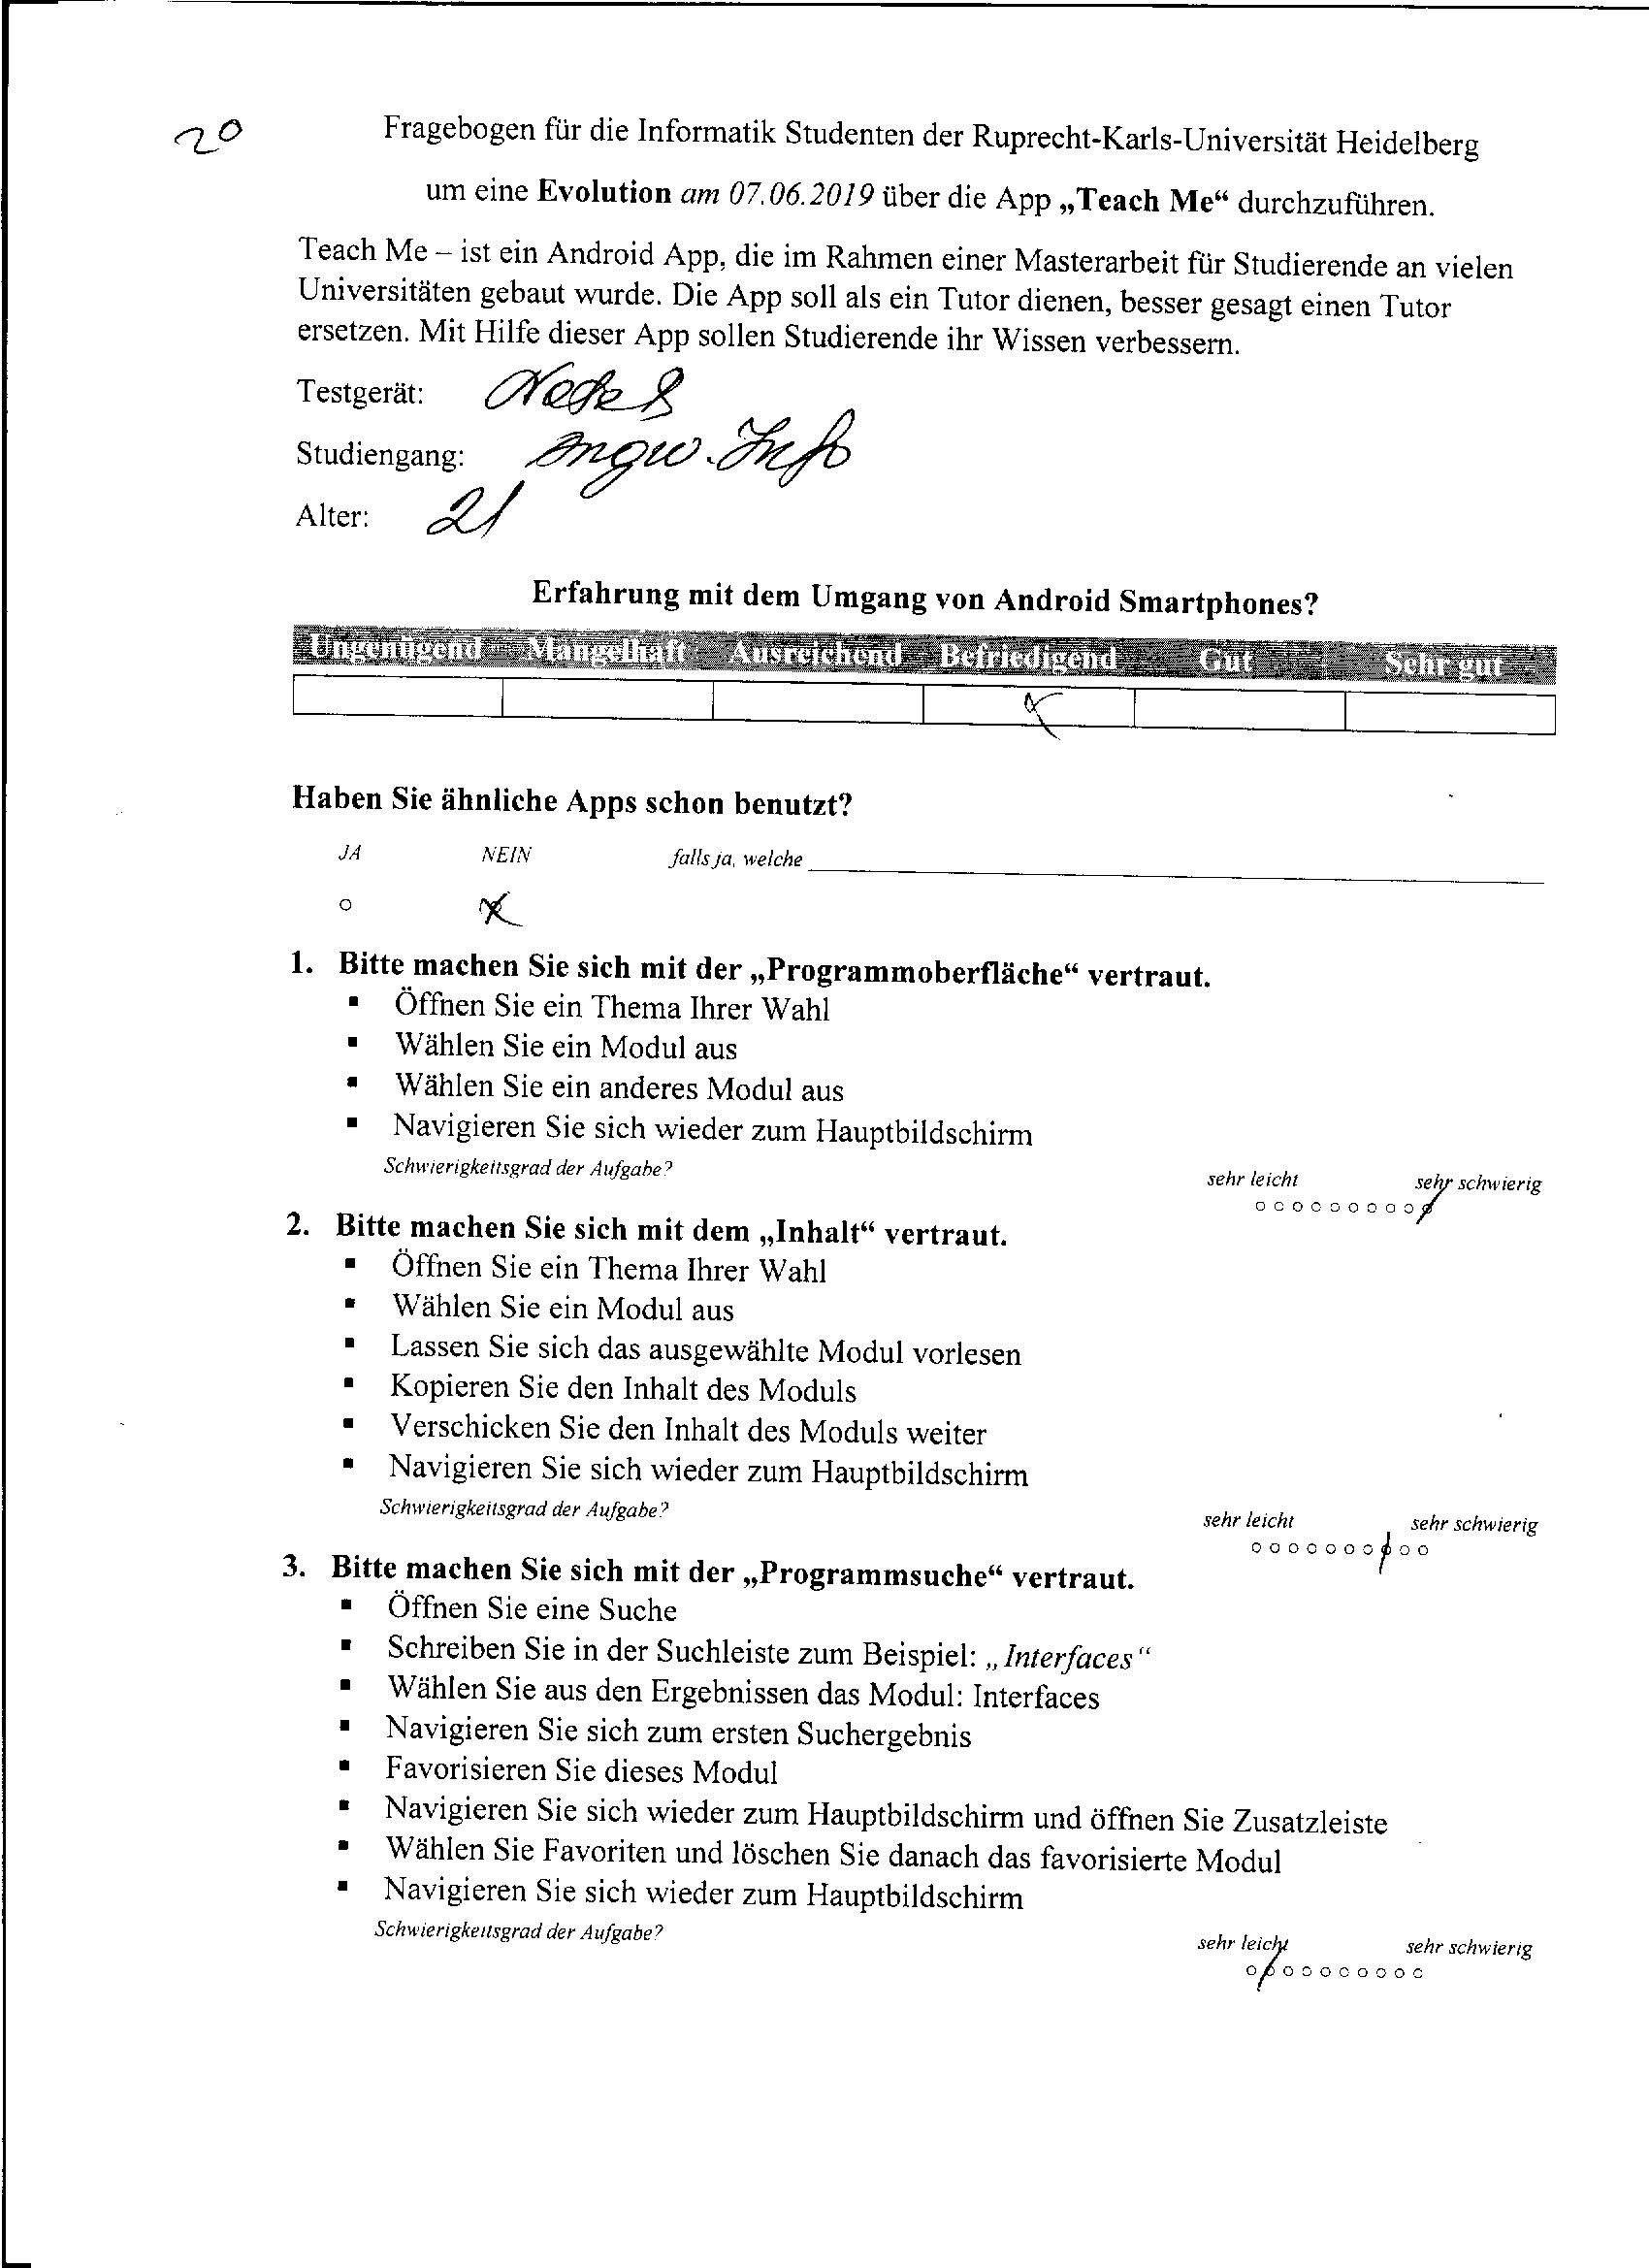 20
Fragebogen für die Informatik Studenten der Ruprecht-Karls-Universität Heidelberg
um eine Evolution am 07.06.2019 über die App „Teach Me“ durchzuführen.
Teach Me – ist ein Android App, die im Rahmen einer Masterarbeit für Studierende an vielen
Universitäten gebaut wurde. Die App soll als ein Tutor dienen, besser gesagt einen Tutor
ersetzen. Mit Hilfe dieser App sollen Studierende ihr Wissen verbessern.
Testgerät: 8
Studiengang: Angw. Info
Alter: 21
Erfahrung mit dem Umgang von Android Smartphones?
Ungenügend Mangelhaft Ausreichend Befriedigend Gut Sehr gut
Haben Sie ähnliche Apps schon benutzt?
JA NEIN falls ja, welche
1. Bitte machen Sie sich mit der „Programmoberfläche“ vertraut.
▪ Öffnen Sie ein Thema Ihrer Wahl
▪ Wählen Sie ein Modul aus
▪ Wählen Sie ein anderes Modul aus
▪ Navigieren Sie sich wieder zum Hauptbildschirm
Schwierigkeitsgrad der Aufgabe? sehr leicht sehr schwierig
2. Bitte machen Sie sich mit dem „Inhalt“ vertraut.
▪ Öffnen Sie ein Thema Ihrer Wahl
▪ Wählen Sie ein Modul aus
▪ Lassen Sie sich das ausgewählte Modul vorlesen
▪ Kopieren Sie den Inhalt des Moduls
▪ Verschicken Sie den Inhalt des Moduls weiter
▪ Navigieren Sie sich wieder zum Hauptbildschirm
Schwierigkeitsgrad der Aufgabe? sehr leicht sehr schwierig
3. Bitte machen Sie sich mit der „Programmsuche“ vertraut.
▪ Öffnen Sie eine Suche
▪ Schreiben Sie in der Suchleiste zum Beispiel: „Interfaces“
▪ Wählen Sie aus den Ergebnissen das Modul: Interfaces
▪ Navigieren Sie sich zum ersten Suchergebnis
▪ Favorisieren Sie dieses Modul
▪ Navigieren Sie sich wieder zum Hauptbildschirm und öffnen Sie Zusatzleiste
▪ Wählen Sie Favoriten und löschen Sie danach das favorisierte Modul
▪ Navigieren Sie sich wieder zum Hauptbildschirm
Schwierigkeitsgrad der Aufgabe? sehr leicht sehr schwierig